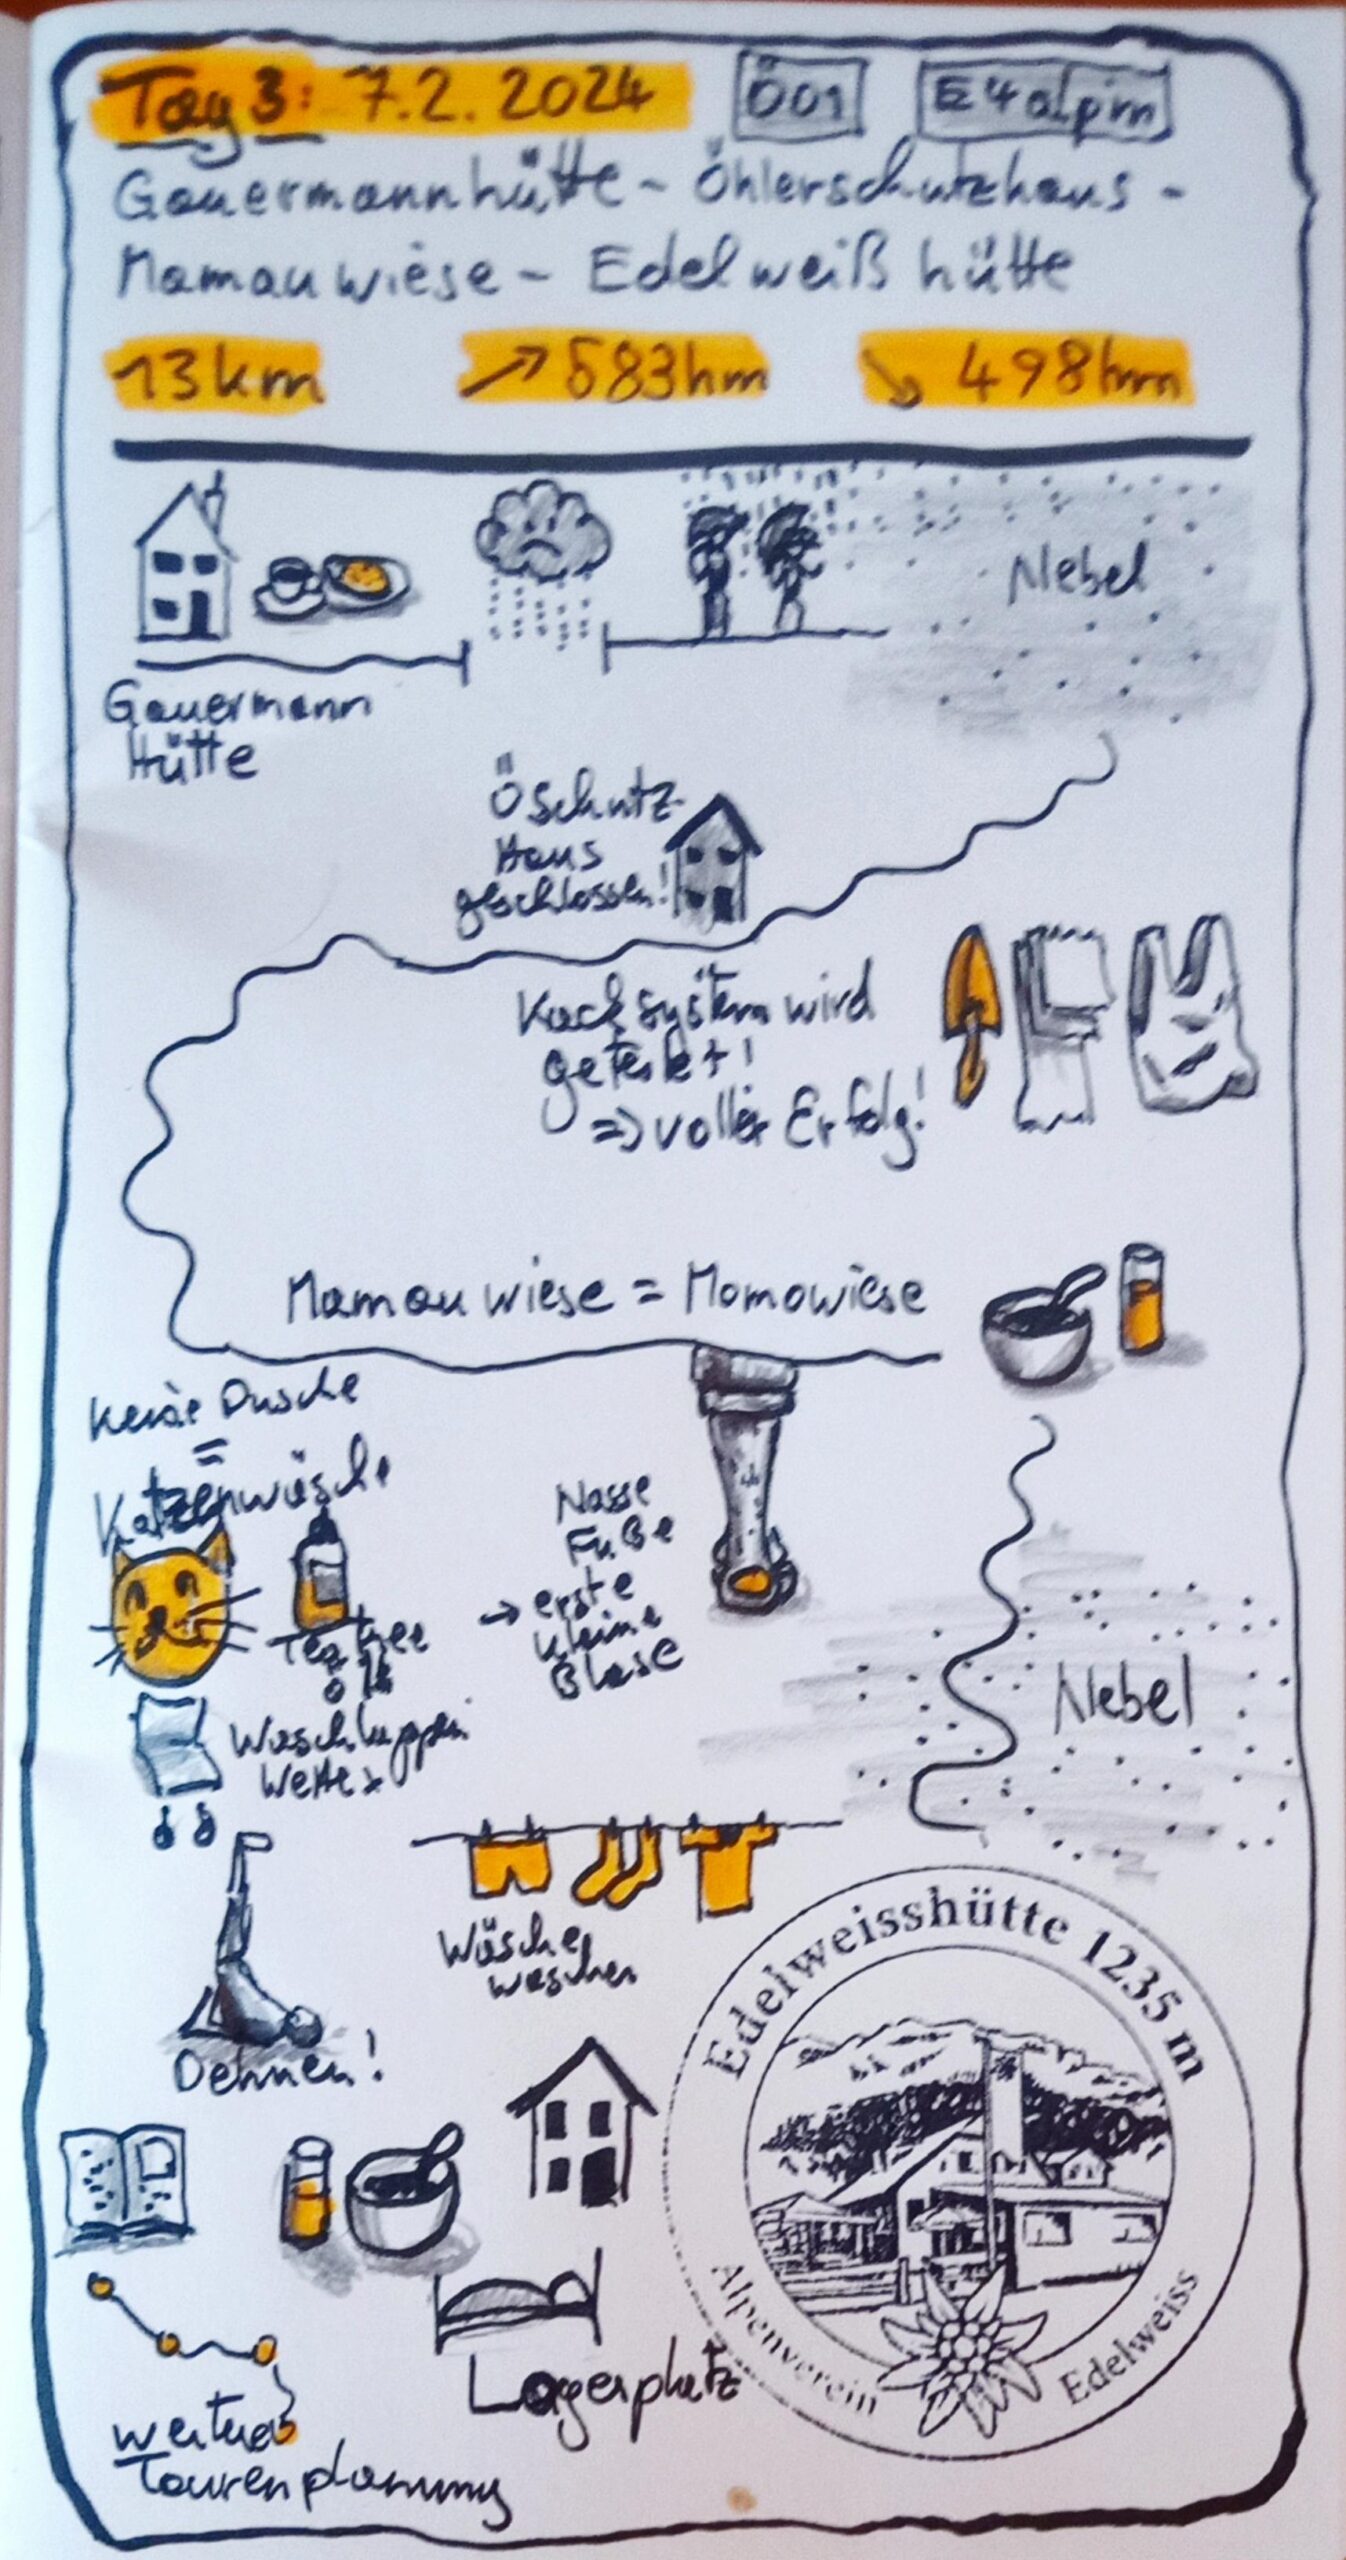 Tag 3: 7.2.2024 Ö01 E4alpin
Gauermannhütte - Öhlerschutzhaus -
Mamauwiese - Edelweißhütte
13km ↗ 583hm ↘ 498hm
Nebel
Gauermann
Hütte
Öschutz
Haus
geschlossen!
Kacksystem wird
getestet!
=> voller Erfolg!
Mamauwiese = Momowiese
Keine Dusche
=
Katzenwäsche
Tea tree
Öl
Waschlappen
Wetter
Nasse
Füße
→ erste
kleine
Blase
Nebel
Wäsche
waschen
Dehnen!
Edelweisshütte 1235 m
Alpenverein Edelweiss
Lagerplatz
weitere
Tourenplanung